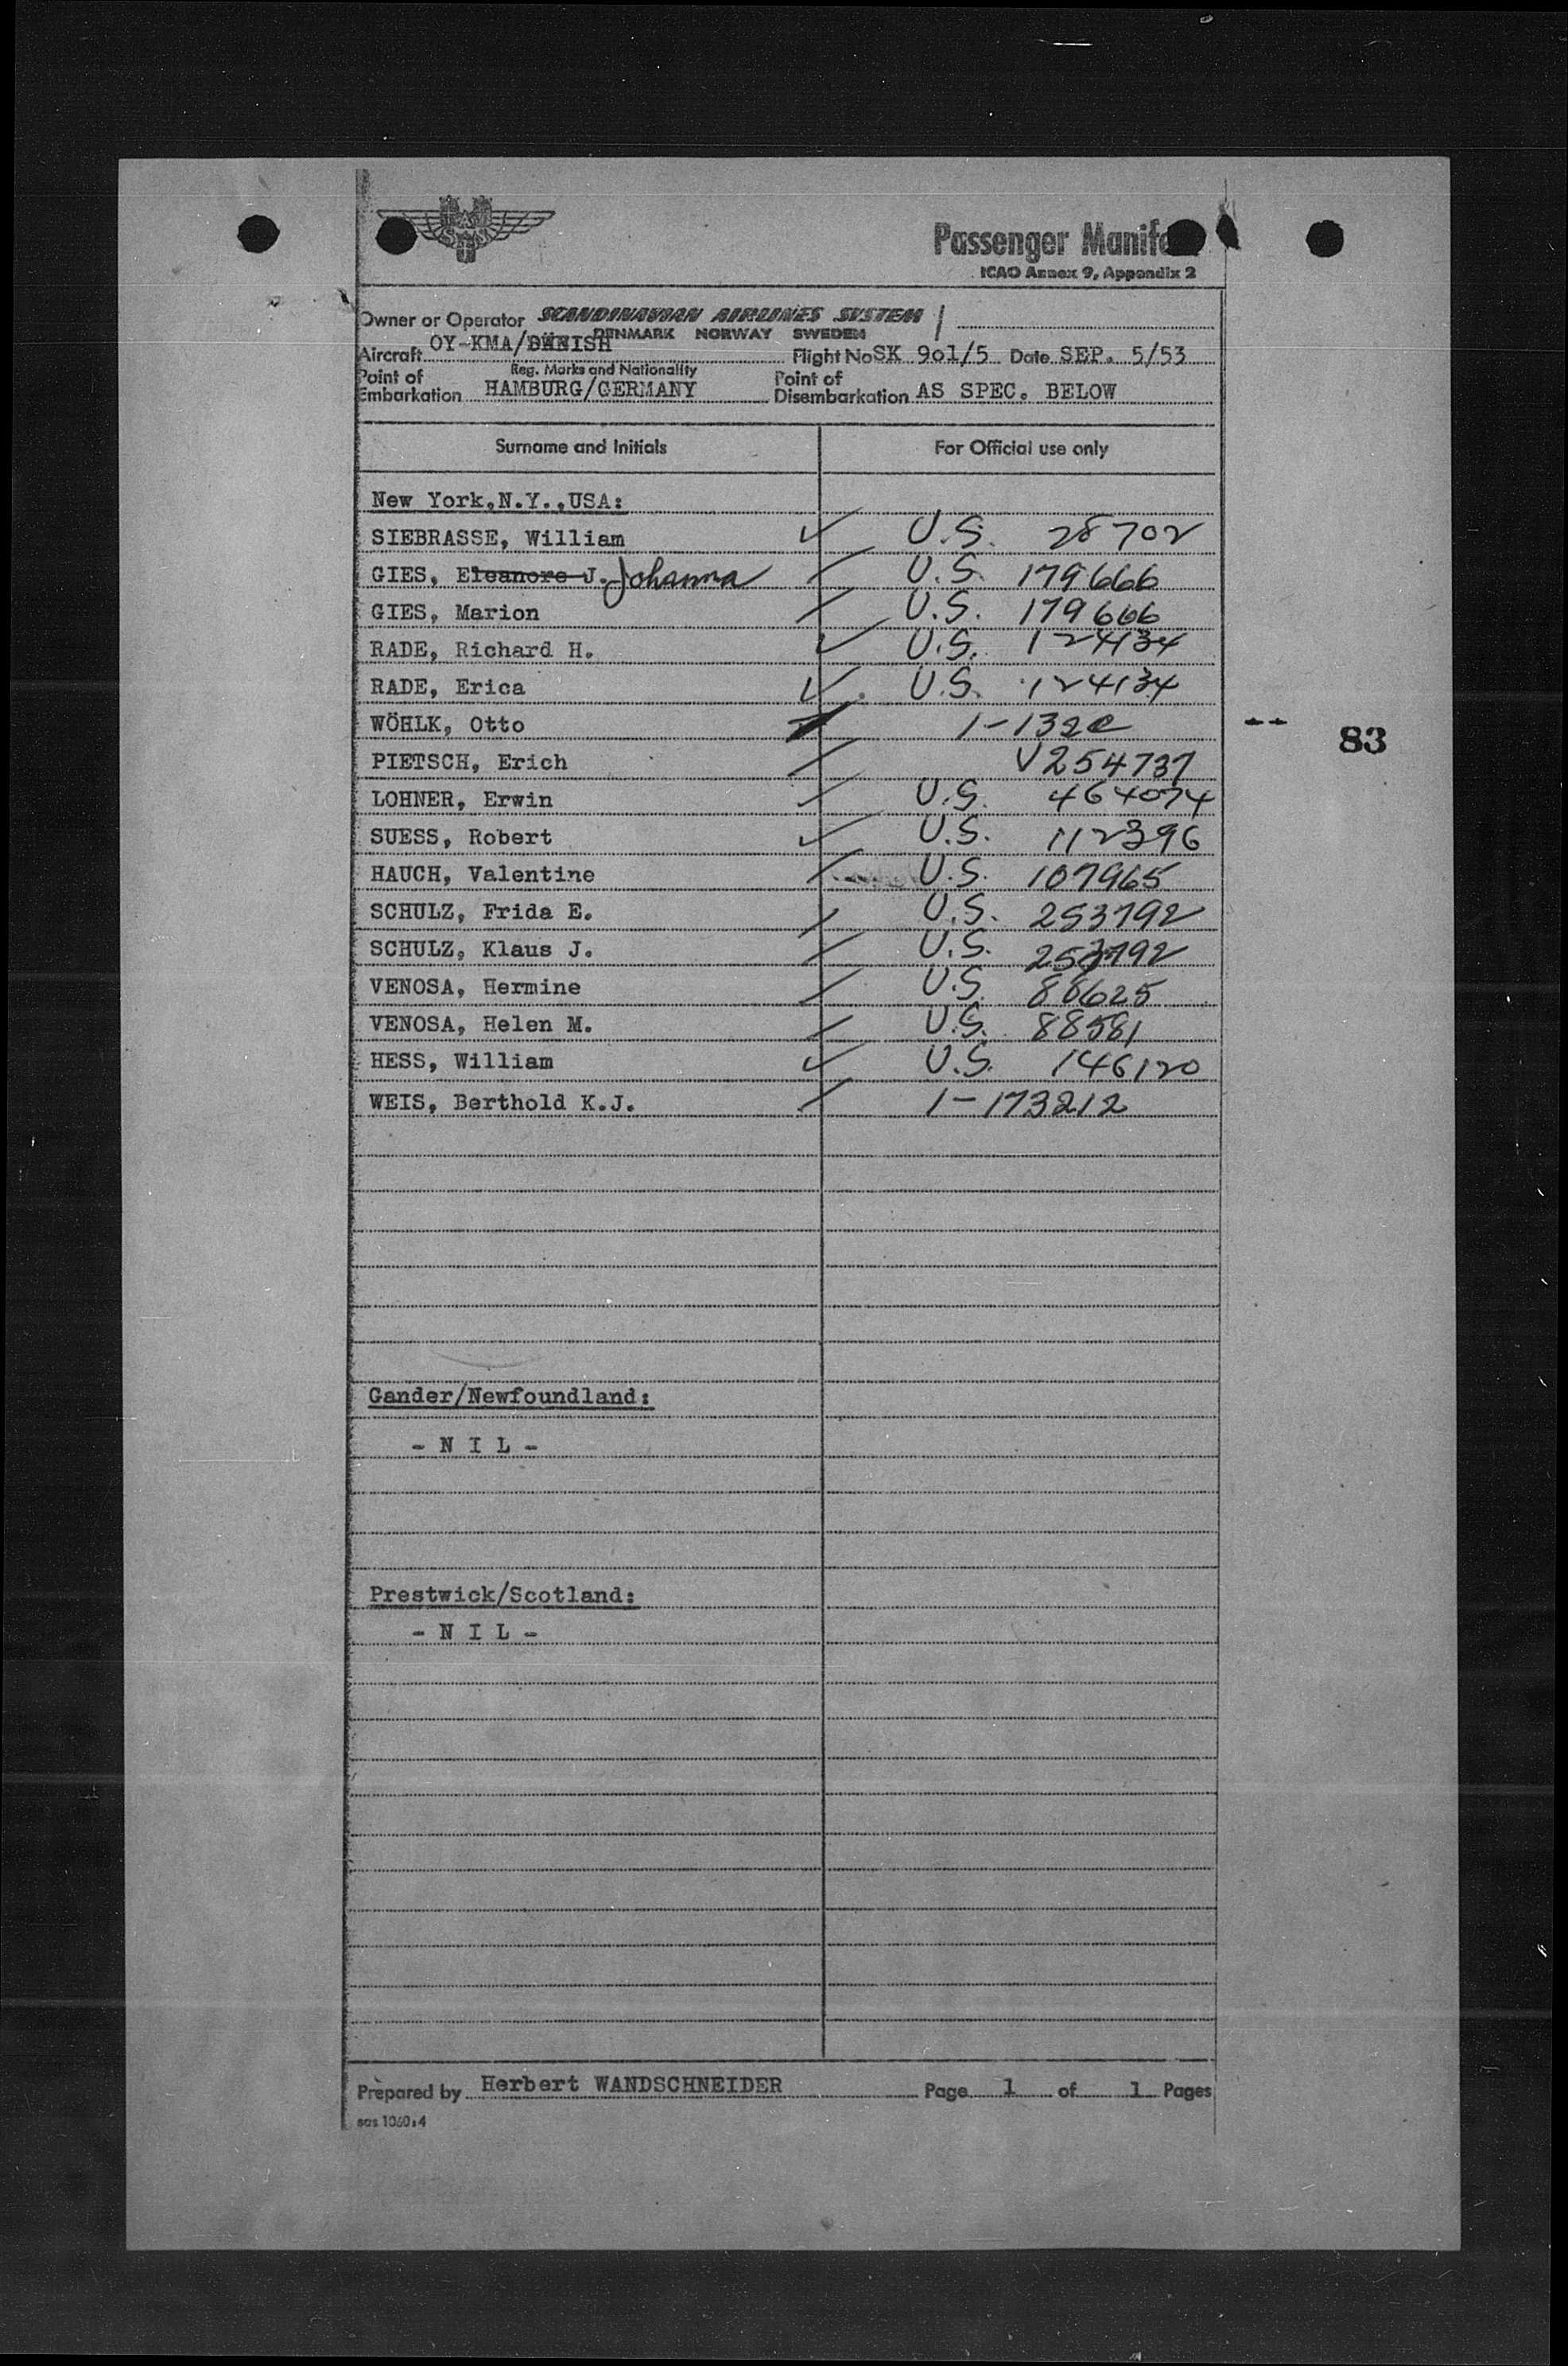 SAS
Passenger Manife
ICAO Annex 9, Appendix 2
Owner or Operator SCANDINAVIAN AIRLINES SYSTEM
DENMARK NORWAY SWEDEN
Aircraft OY-KMA/DANISH Flight No SK 901/5 Date SEP. 5/53
Reg. Marks and Nationality
Point of Embarkation HAMBURG/GERMANY Point of Disembarkation AS SPEC. BELOW
Surname and Initials For Official use only
New York,N.Y.,USA:
SIEBRASSE, William U.S. 28702
GIES, Eleanore J. Johanna U.S. 179666
GIES, Marion U.S. 179666
RADE, Richard H. U.S. 124134
RADE, Erica U.S. 124134
WÖHLK, Otto 1-132c
83
PIETSCH, Erich V254737
LOHNER, Erwin U.S. 464074
SUESS, Robert U.S. 112396
HAUCH, Valentine U.S. 107965
SCHULZ, Frida E. U.S. 253792
SCHULZ, Klaus J. U.S. 253792
VENOSA, Hermine U.S. 88625
VENOSA, Helen M. U.S. 88581
HESS, William U.S. 146120
WEIS, Berthold K.J. 1-173212
Gander/Newfoundland:
- N I L -
Prestwick/Scotland:
- N I L -
Prepared by Herbert WANDSCHNEIDER Page 1 of 1 Pages
sas 1060:4